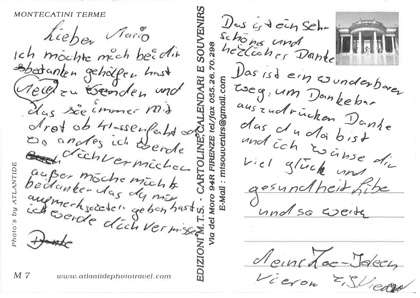 MONTECATINI TERME
Lieber Mario
ich möchte mich bei dir
geholfen hast
Neu zu wenden und
das sie immer mit
dort ob Klassenfahrt od.
wo anders ich werde
dich vermichen
außer möchte mich
bedanken das du mir
aufmerksamkeit geben hast
ich werde dich vermissen
Danke
M 7
www.atlantidephototravel.com
Photo's by ATLANTIDE
EDIZIONI M.T.S. - CARTOLINE, CALENDARI E SOUVENIRS
Via del Moro 94R FIRENZE tel/fax 055.26.70.298
E-Mail: mtssouvenirs@gmail.com
Das ist ein sehr
schönes und
herzliches Danke
Das ist ein wunderbarer
weg, um Dankebar
auszudrücken Danke
das du da bist
und ich wünse dir
viel glück und
gesundheit Libe
und so weiter
deine